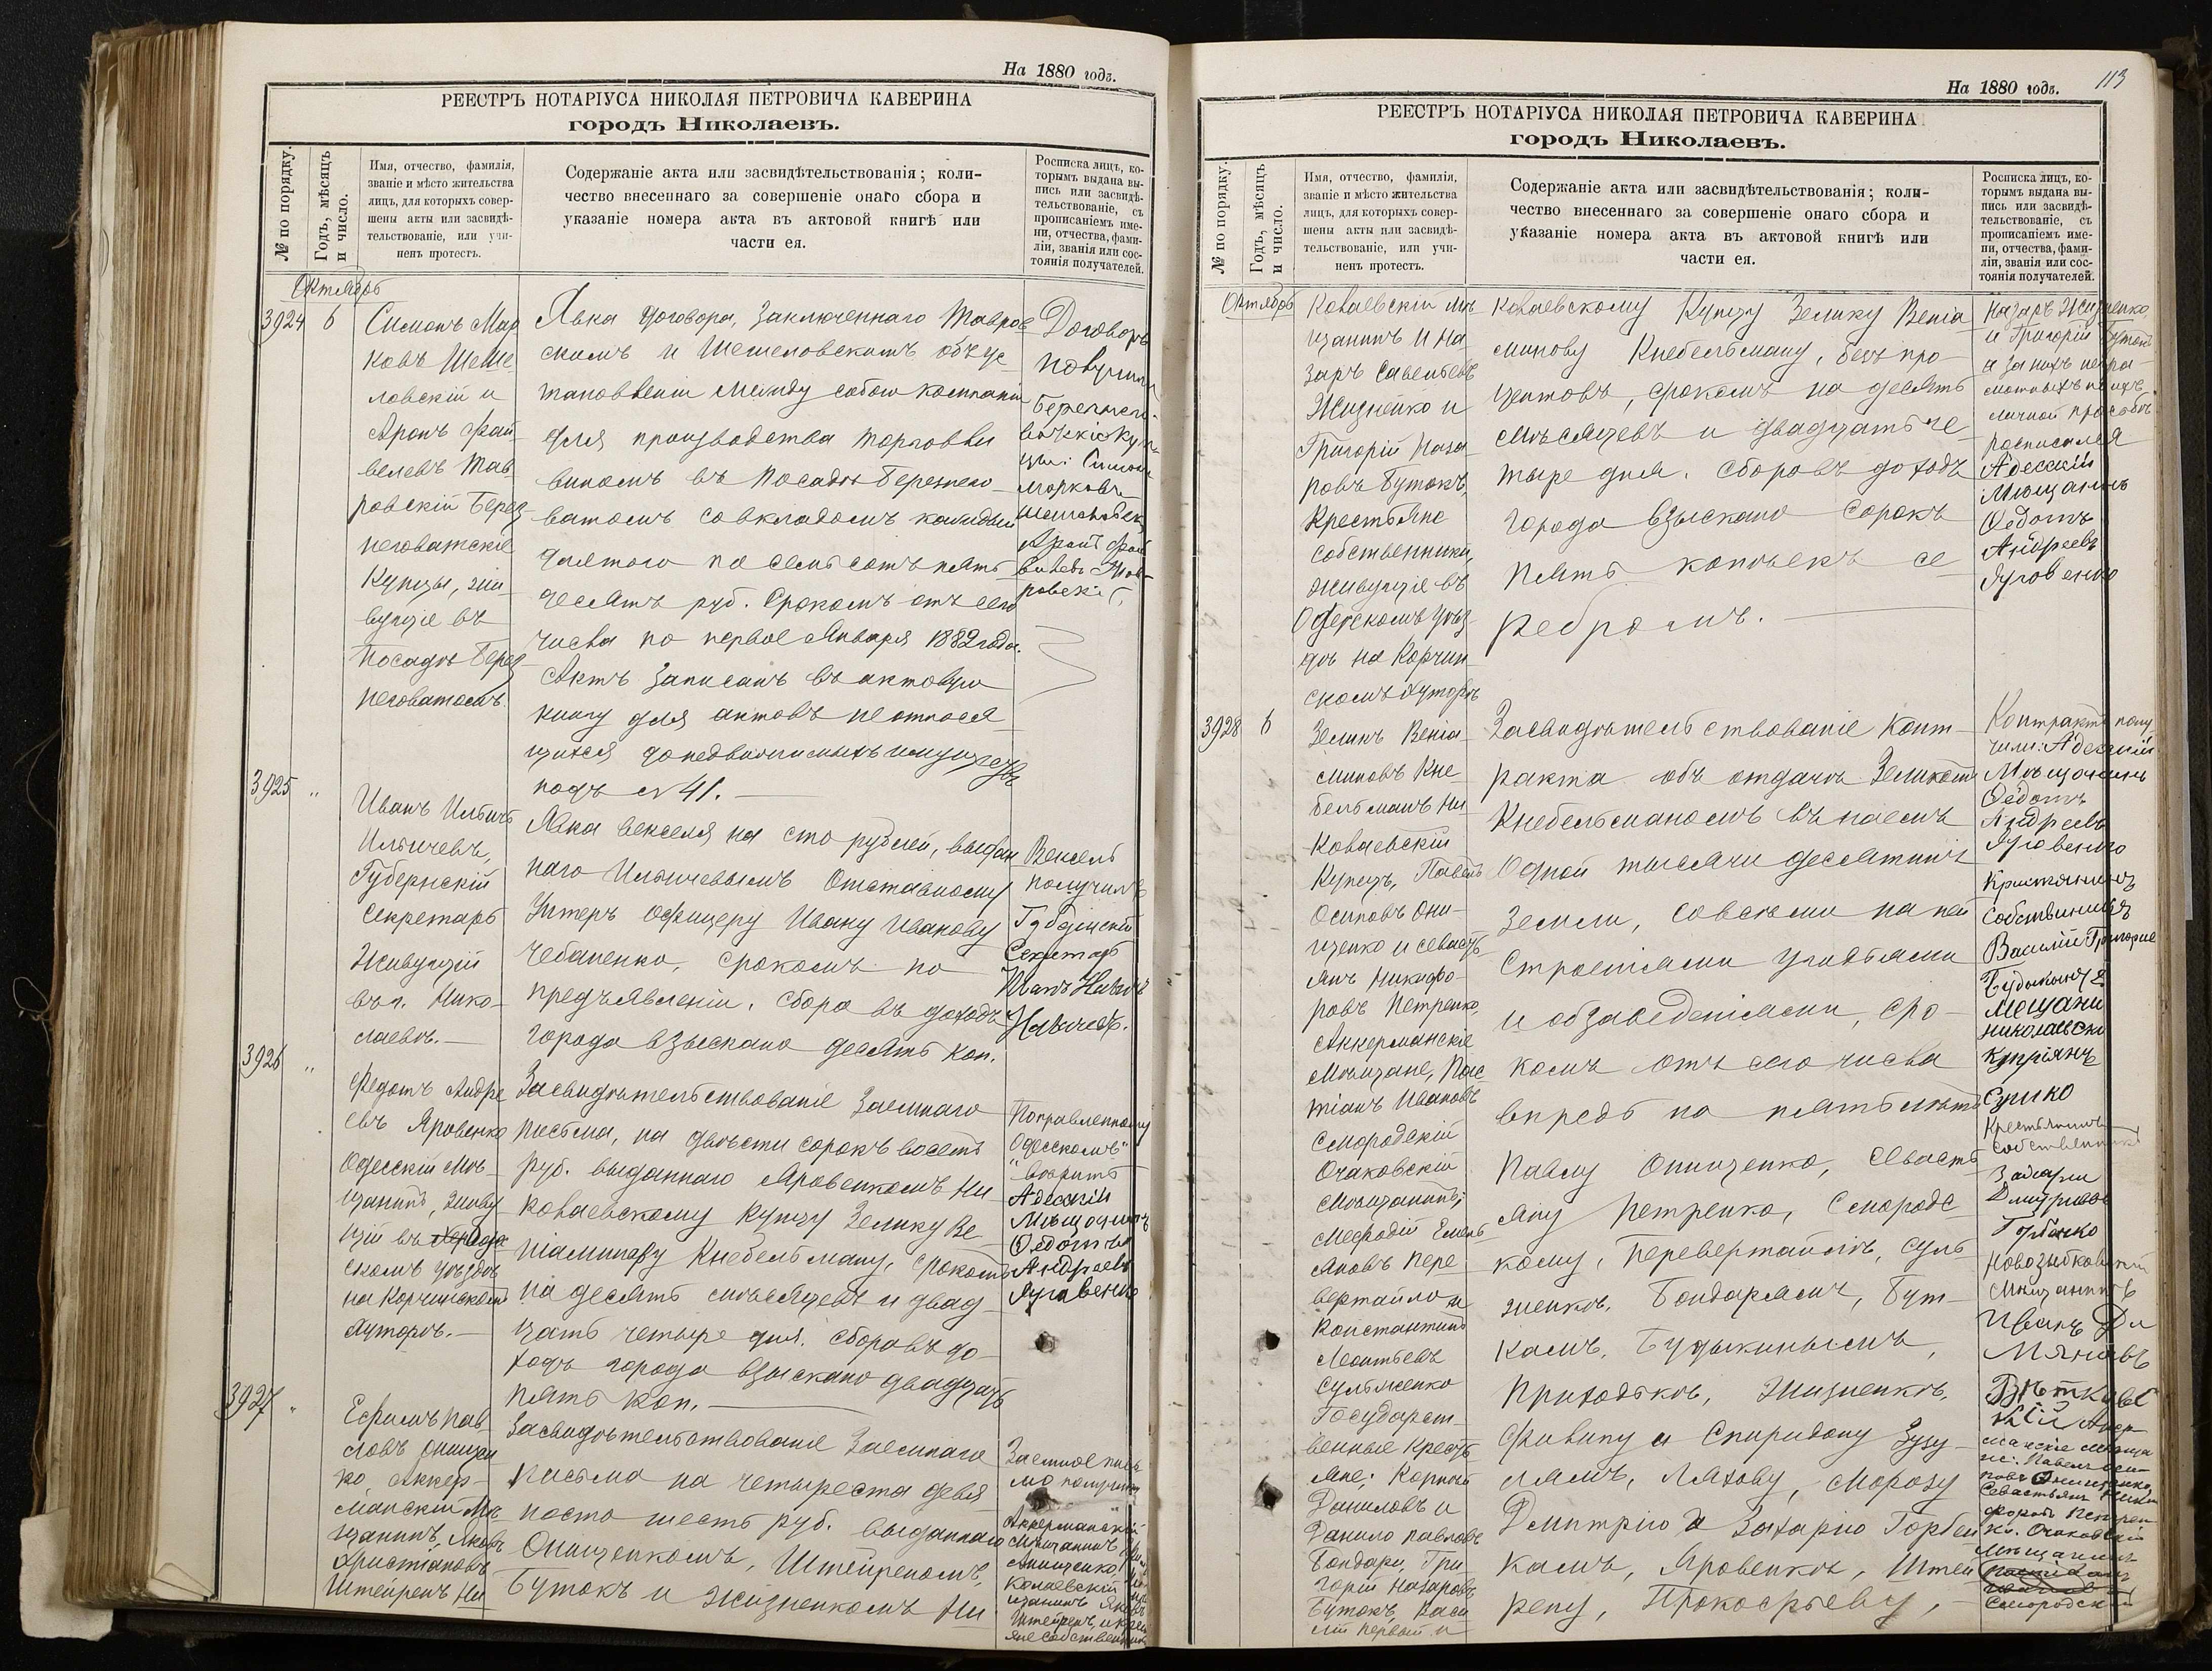 На 1880 годъ.
РЕЕСТРЪ НОТАРІУСА НИКОЛАЯ ПЕТРОВИЧА КАВЕРИНА
городъ Николаевъ.
№ по порядку.
Годъ, мѣсяцъ
и число.
Имя, отчество, фамилія,
званіе и мѣсто жительства
лицъ, для которыхъ совер-
шены акты или засвидѣ-
тельствованіе, или учи-
ненъ протестъ.
Содержаніе акта или засвидѣтельствованія; коли-
чество внесеннаго за совершеніе онаго сбора и
указаніе номера акта въ актовой книгѣ или
части ея.
Росписка лицъ, ко-
торымъ выдана вы-
пись или засвидѣ-
тельствованіе, съ
прописаніемъ име-
ни, отчества, фами-
ліи, званія или сос-
тоянія получателей.
Октябрь
3924 6
Симонъ Мар
ковъ Шеше
ловскій и
Аронъ Фай
велевъ Тав
ровскій Берез
неговатскіе
Купцы, жи
вущіе въ
Посадѣ Берез
неговатомъ.
Явка договора, заключеннаго Тавров
скимъ и Шешеловскимъ объ ус
тановленіи между собою компаніи
для производства торговли
виномъ въ Посадѣ Березнего
ватомъ со вкладомъ каждый
по семьсотъ пять
десять руб. Срокомъ отъ сего
числа по первое Января 1882 года.
Актъ записанъ въ актовую
книгу для актовъ не относя
щихся до недвижимыхъ имуществъ
подъ № 41.
Договоръ
получили
Купцы
цы: Симонъ
Марковъ
Аронъ Фай
велевъ Тав
ровскій
3925 "
Иванъ Ильичъ
Ильичевъ,
Губернскій
Секретарь
Живущій
въ г. Нико-
лаевѣ.
Явка векселя на сто рублей, выдан
наго Ильичевымъ Отставному
Унтеръ Офицеру Ивану Иванову
Чебаненко, срокомъ по
предъявленіи. Сбора въ доходъ
города взыскано десять коп.
Вексель
получилъ
Губернскій
Секретарь
Иванъ
3926 "
Федотъ Андре
евъ Яровенко
Одесскій Мѣ-
щанинъ, живу
щій въ
скомъ уѣздѣ
на Корчинскомъ
хуторѣ.
Засвидѣтельствованіе Заемнаго
письма, на двѣсти сорокъ восемь
руб. выданнаго Яровенкомъ Ни
колаевскому Купцу Зелику Ве-
ніаминову Кнебельману, срокомъ
на десять мѣсяцевъ и двад-
цать четыре дня. Сборовъ до
ходъ города взыскано двадцать
пять коп.
Поправленному
"Одесскомъ"
вѣрить
Адесскій
Мѣщанинъ
Федотъ
Андреевъ
Яровенко
3927 "
Ефимъ Пав
ловъ Онищен
ко, Аккер-
манскій Мѣ-
щанинъ, Яковъ
Христіановъ
Штейренъ Ни
Засвидѣтельствованіе Заемнаго
письма на четыреста девя
носто шесть руб. выданнаго
Онищенкомъ, Штейреномъ,
Бутокъ и Жизненкомъ Ни
Заемное пись
мо получили
Аккерманскій
Мѣщанинъ
Онищенко,
щанинъ Яковъ
Штейренъ, и крес
На 1880 годъ.
113
РЕЕСТРЪ НОТАРІУСА НИКОЛАЯ ПЕТРОВИЧА КАВЕРИНА
городъ Николаевъ.
№ по порядку.
Годъ, мѣсяцъ
и число.
Имя, отчество, фамилія,
званіе и мѣсто жительства
лицъ, для которыхъ совер-
шены акты или засвидѣ-
тельствованіе, или учи-
ненъ протестъ.
Содержаніе акта или засвидѣтельствованія; коли-
чество внесеннаго за совершеніе онаго сбора и
указаніе номера акта въ актовой книгѣ или
части ея.
Росписка лицъ, ко-
торымъ выдана вы-
пись или засвидѣ-
тельствованіе, съ
прописаніемъ име-
ни, отчества, фами-
ліи, званія или сос-
тоянія получателей.
Октябрь
колаевскій мѣ
щанинъ и На
заръ Савельевъ
Жизненко и
Григорій Наза
ровъ Бутокъ,
Крестьяне
собственники,
живущіе въ
Одесскомъ уѣз
дѣ на Корчин
скомъ хуторѣ
колаевскому Купцу Зелику Веніа
минову Кнебельману, безъ про
центовъ, срокомъ на десять
мѣсяцевъ и двадцать че
тыре дня. Сборовъ доходъ
города взыскано сорокъ
пять копѣекъ се
ребромъ.
Назаръ Жизненко,
и Григорій Бутокъ
а за нихъ негра
мотныхъ по ихъ
личной просьбѣ
росписался
Адесскій
Мѣщанинъ
Федотъ
Андреевъ
Яровенко
3928 6
Зеликъ Веніа
миновъ Кне
бельманъ Ни
колаевскій
Купецъ, Павелъ
Осиповъ Они-
щенко и Севасть
янъ Никифо-
ровъ Петренко,
Аккерманскіе
Мѣщане, Пас
тіанъ Ивановъ
Смородскій
Очаковскій
Мѣщанинъ;
Мефодій Емель
яновъ Пере
вертайло и
Константинъ
Леонтьевъ
Сульженко
Государст-
венные Кресть
яне; Корній
Даниловъ и
Данило Павловъ
Бондари, Гри
горій Назаровъ
Бутокъ, Васи
лій первый и
Засвидѣтельствованіе конт-
ракта объ отдачѣ Зеликомъ
Кнебельманомъ въ наемъ
Одной тысячи десятинъ
земли, со всѣми на ней
строеніями угодьями
и обзаведеніями, сро-
комъ отъ сего числа
впредь на пять лѣтъ
Павлу Онищенко, Севасть
яну Петренко, Смородс
кому, Перевертайлѣ, Суль
женкѣ, Бондарямъ, Бут-
камъ, Будыкинымъ,
Приходькѣ, Жизненкѣ,
Филипу и Спиридону Зузу
лямъ, Ляхову, Морозу
Дмитрію и Захарію Горбен
камъ, Яровенкѣ, Штей
рену, Прокофьеву,
Контрактъ полу
чили: Адесскій
Мѣщанинъ
Федотъ
Андреевъ
Яровенко
Собственникъ
Василій Григорье
Мещани
николаевски
Купріянъ
Сушко
Крестьянинъ
Собственникъ
Захарій
Дмитріевъ
Горбенко
Новозыбковскій
Мѣщанинъ
Иванъ
манскіе мѣща
не: Павелъ Оси
повъ Онищенко,
Севастьянъ Ники
форовъ Петрен
ко. Очаковскій
Мѣщанинъ
Смородскій